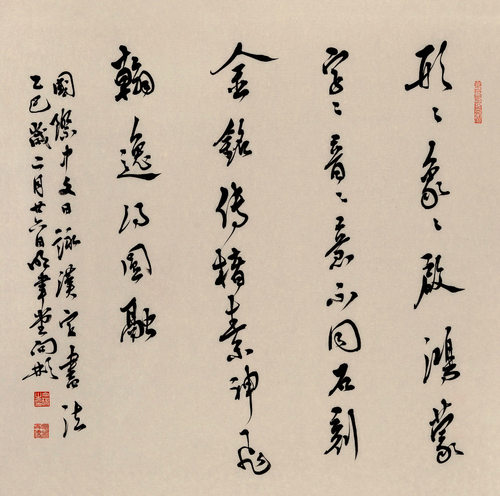 形形象象啟鴻蒙
字字音音意不同石刻
金銘傳楮素神飛
翰逸得圓融
國際中文日詠漢字書法
乙巳歲二月廿六日